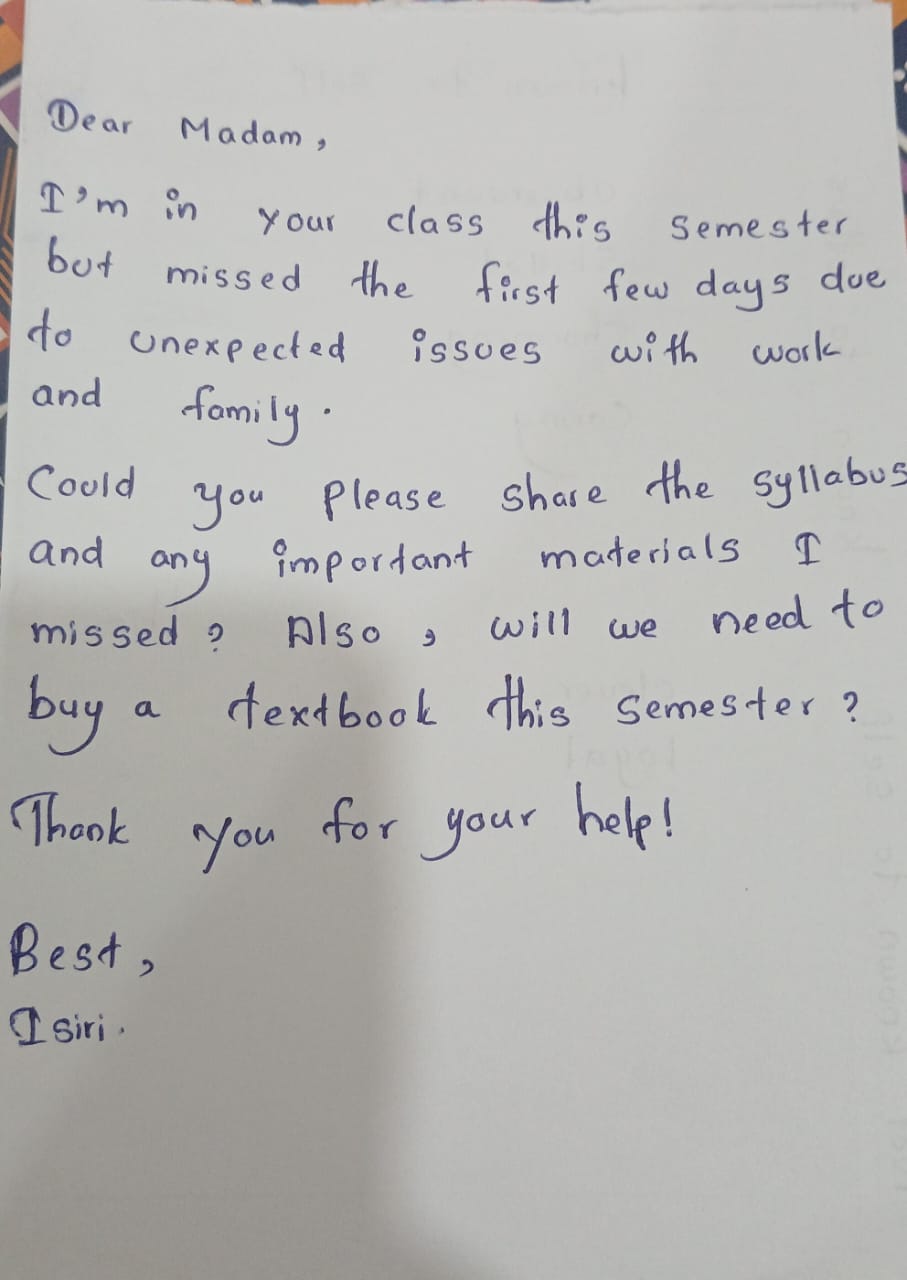 Dear Madam,
I'm in your class this semester
but missed the first few days due
to unexpected issues with work
and family.
Could you please share the syllabus
and any important materials I
missed? Also, will we need to
buy a textbook this semester?
Thank you for your help!
Best,
Isiri.